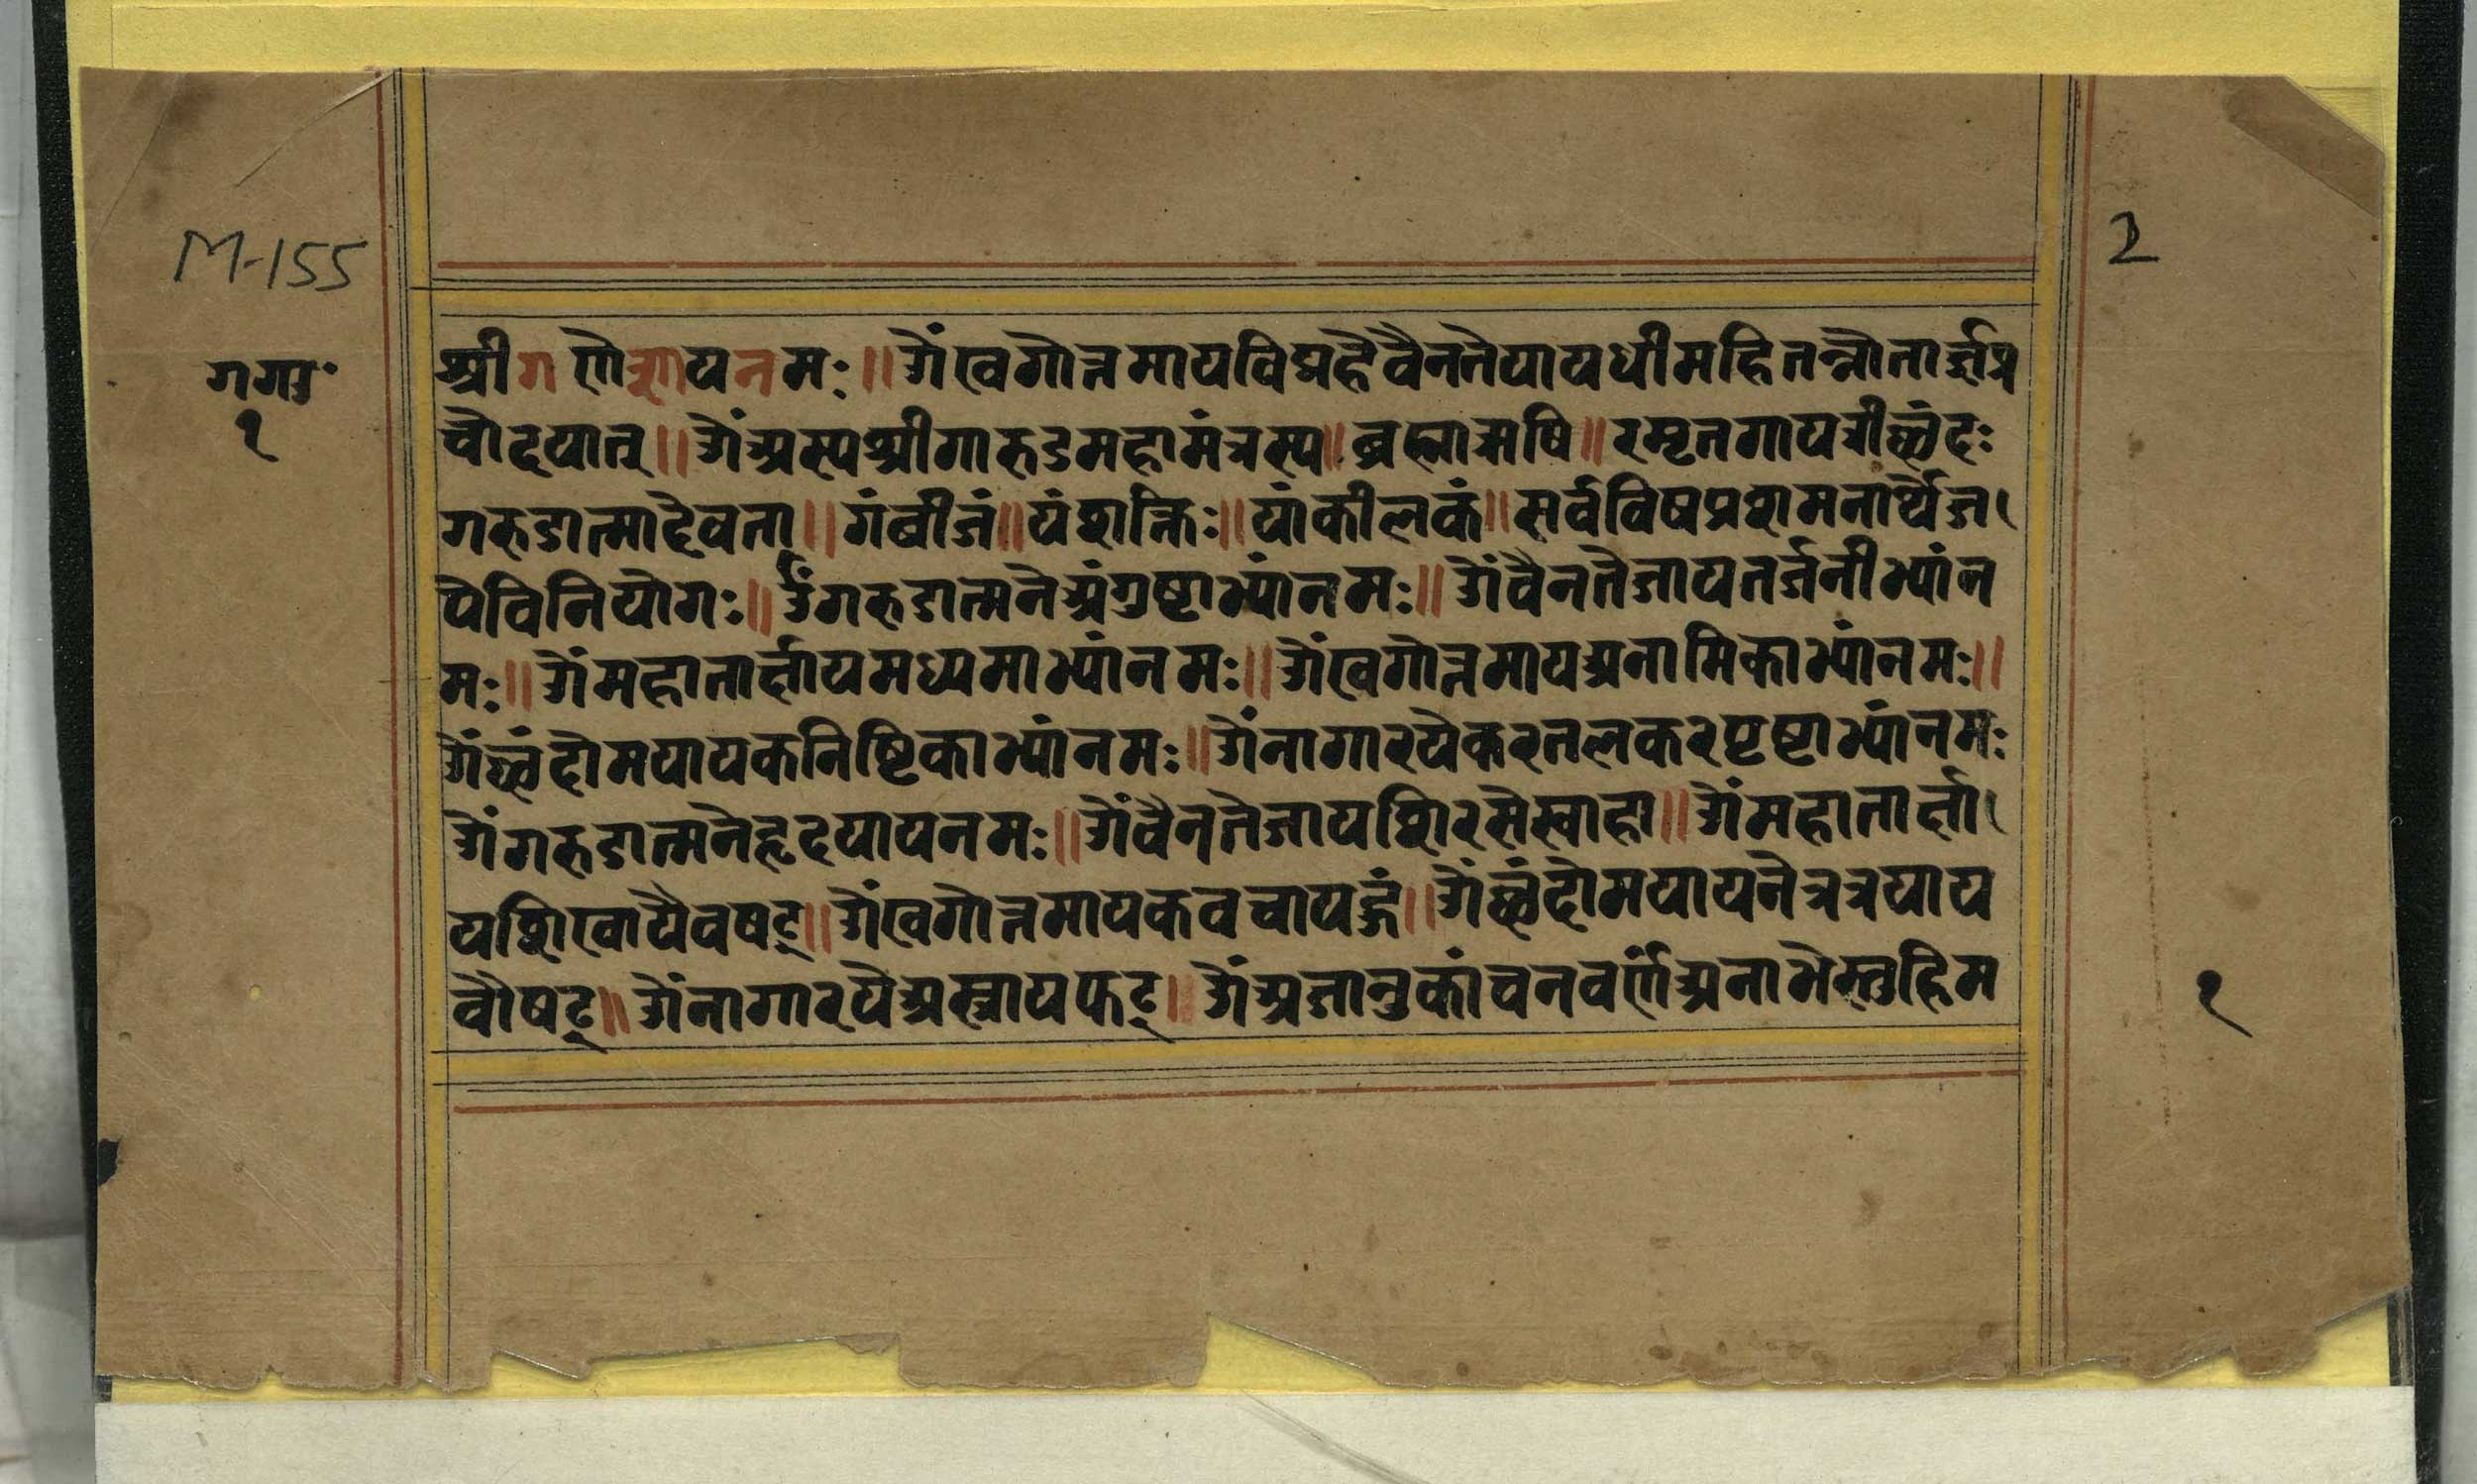 M-155
2
गगा॰
१
श्रीगणेशायनमः॥ॐखगोत्तमायविद्महेवैनतेयायधीमहितन्नोतार्क्षप्र
चोदयात्॥ॐअस्यश्रीगारुडमहामंत्रस्य॥ब्रह्माऋषि॥रमृतगायत्रीछंदः
गरुडात्मादेवता॥गंबीजं॥यंशक्तिः॥यांकीलकं॥सर्वविषप्रशमनार्थेज
पेविनियोगः॥ॐगरुडात्मनेअंगुष्टाभ्यांनमः॥ॐवैनतेजायतर्जनीभ्यांन
मः॥ॐमहातार्क्षायमध्यमाभ्यांनमः॥ॐखगोत्तमायअनामिकाभ्यांनमः॥
ॐछंदोमयायकनिष्टिकाभ्यांनमः॥ॐनागारयेकरतलकरपृष्टाभ्यांनमः
ॐगरुडात्मनेहृदयायनमः॥ॐवैनतेजायशिरसेस्वाहा॥ॐमहातार्क्षा
यशिखायैवषट्॥ॐखगोत्तमायकवचायहूं॥ॐछंदोमयायनेत्रत्रयाय
वौषट्॥ॐनागारयेअस्त्रायफट्॥ॐअजानुकांचनवर्णंअनाभेस्तुहिम
१